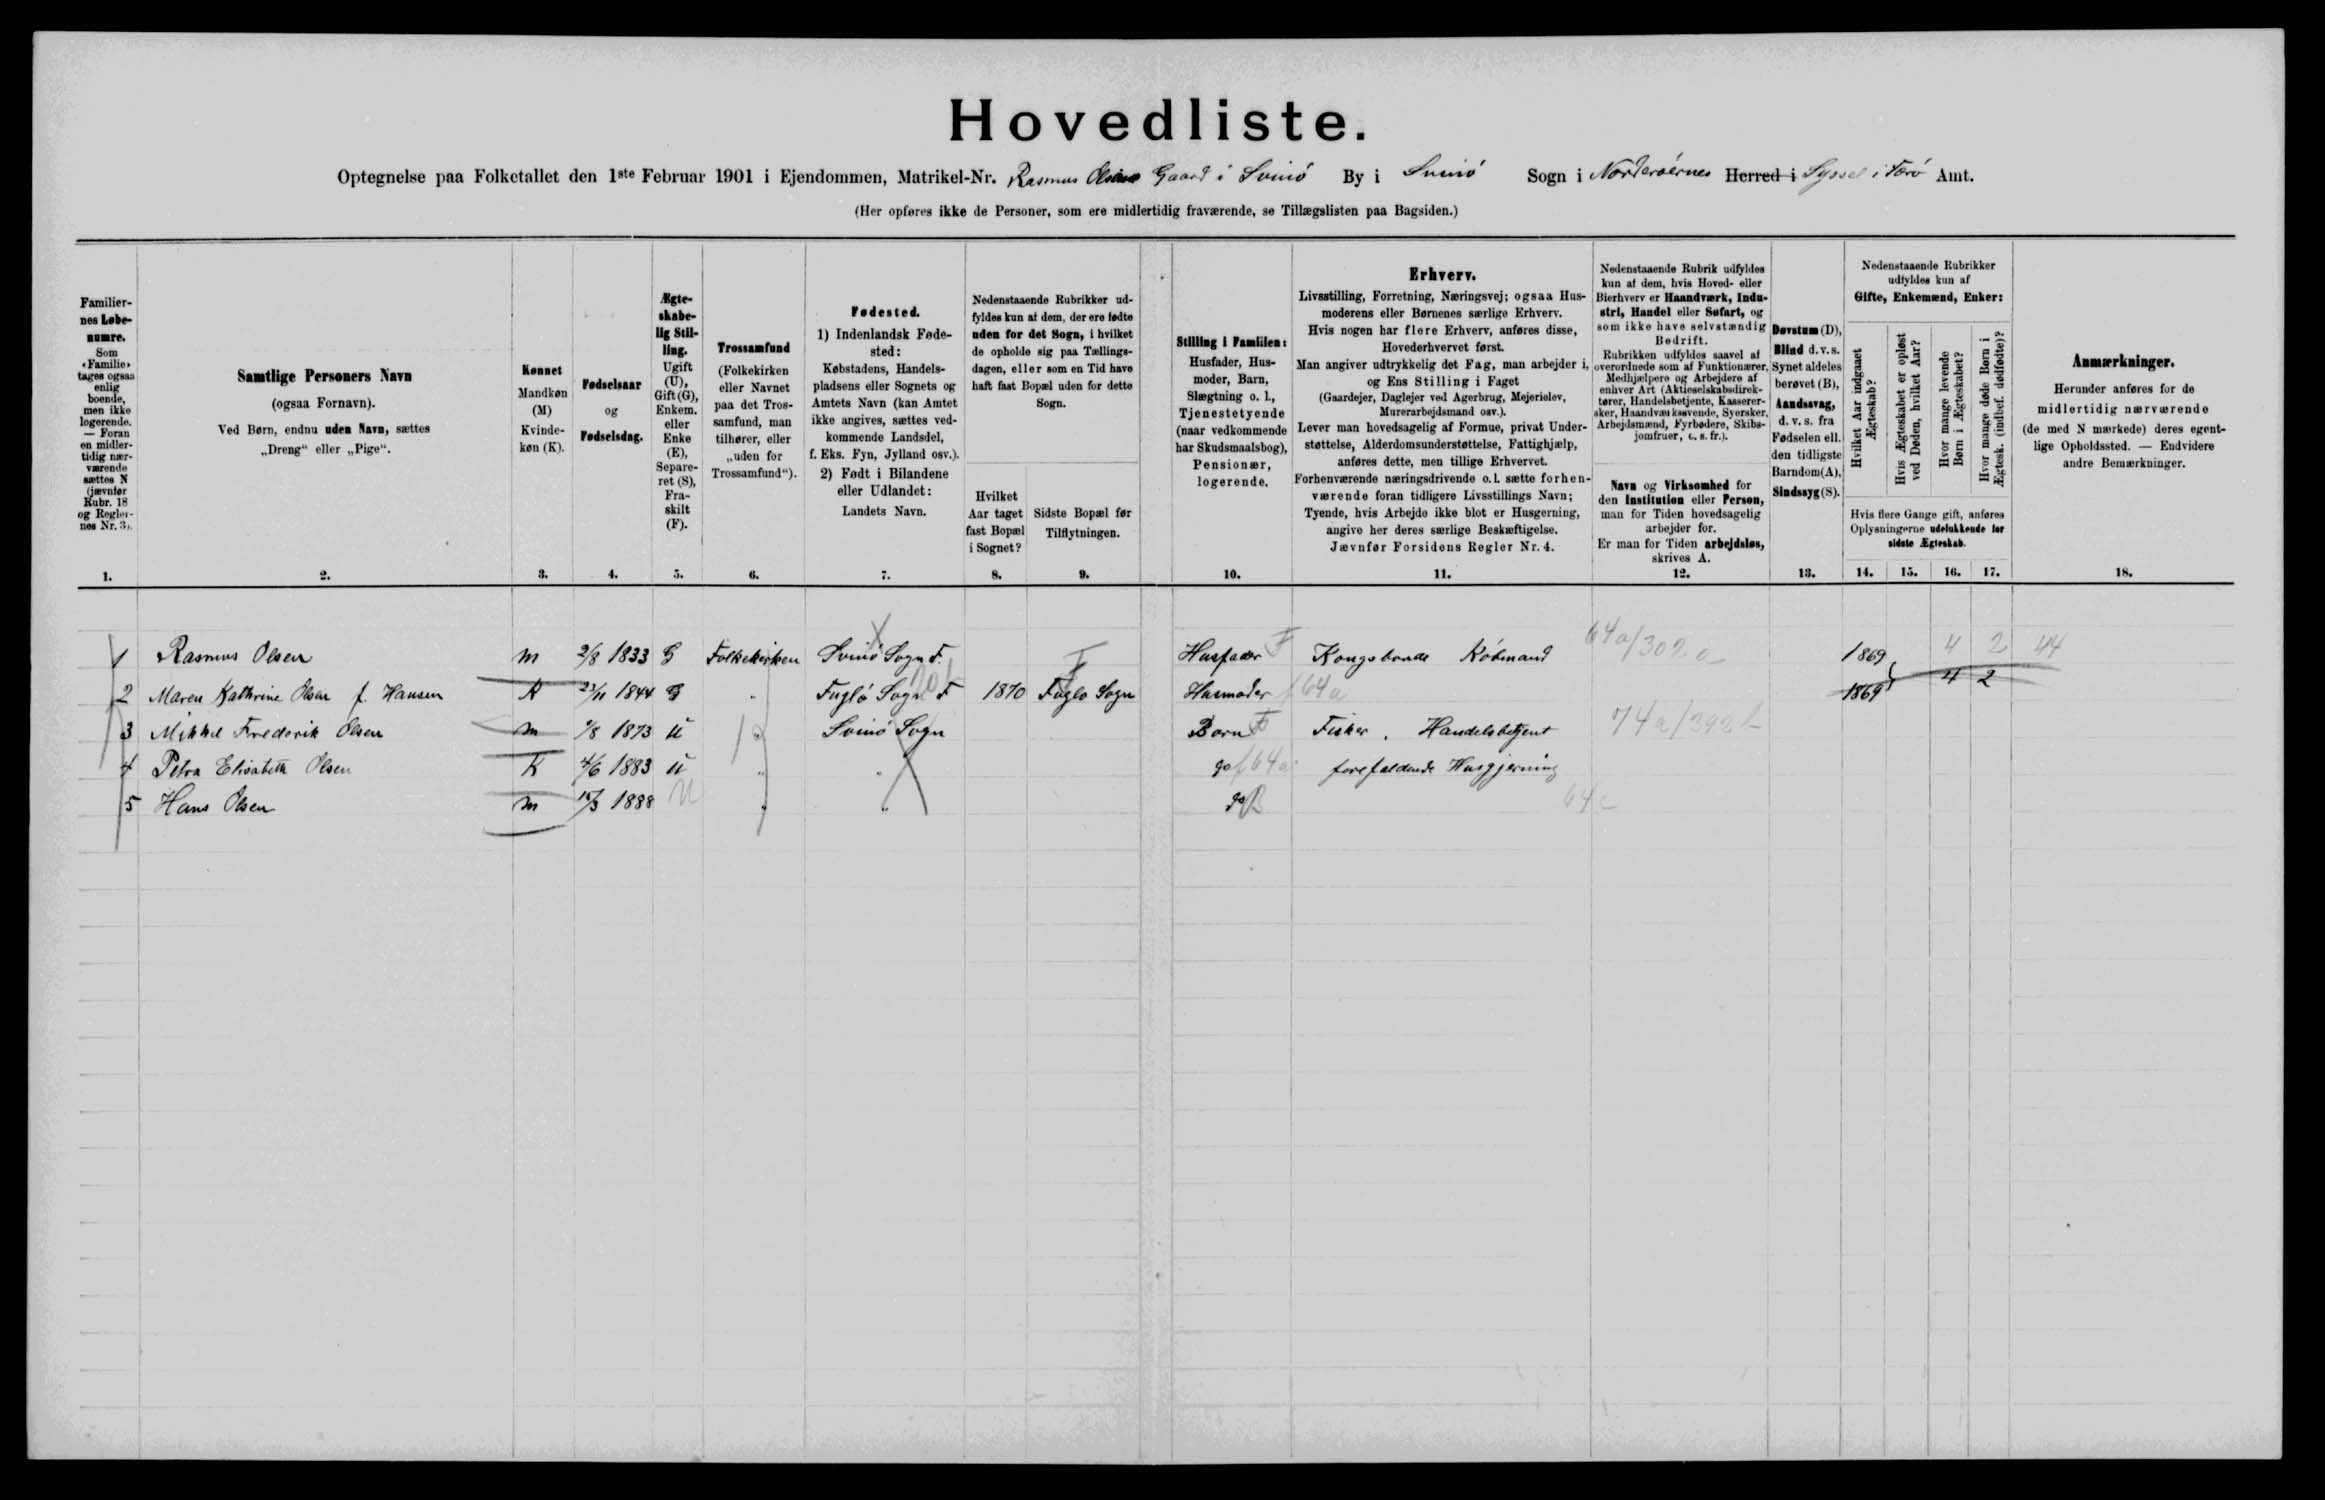 Hovedliste.
Optegnelse paa Folketallet den 1ste Februar 1901 i Ejendommen, Matrikel-Nr. Rasmus Olsens Gaard i Svinö By i Svinö Sogn i Norderöernes Herred i Syssel i Färö Amt.
(Her opføres ikke de Personer, som ere midlertidig fraværende, se Tillægslisten paa Bagsiden.)
Familiernes Løbenumre.
Som «Familie» tages ogsaa enlig boende, men ikke logerende. — Foran en midlertidig nærværende sættes N (jævnfør Rubr. 18 og Reglernes Nr. 3).
Samtlige Personers Navn
(ogsaa Fornavn).
Ved Børn, endnu uden Navn, sættes
„Dreng“ eller „Pige“.
Kønnet
Mandkøn (M)
Kvindekøn (K).
Fødselsaar
og
Fødselsdag.
Ægteskabelig Stilling.
Ugift (U), Gift (G), Enkem. eller Enke (E), Separeret (S), Fraskilt (F).
Trossamfund
(Folkekirken eller Navnet paa det Trossamfund, man tilhører, eller „uden for Trossamfund“).
Fødested.
1) Indenlandsk Fødested:
Købstadens, Handelspladsens eller Sognets og Amtets Navn (kan Amtet ikke angives, sættes vedkommende Landsdel, f. Eks. Fyn, Jylland osv.).
2) Født i Bilandene eller Udlandet:
Landets Navn.
Nedenstaaende Rubrikker udfyldes kun af dem, der ere fødte uden for det Sogn, i hvilket de opholde sig paa Tællingsdagen, eller som en Tid have haft fast Bopæl uden for dette Sogn.
Hvilket Aar taget fast Bopæl i Sognet?
Sidste Bopæl før Tilflytningen.
Stilling i Familien:
Husfader, Husmoder, Barn, Slægtning o. l., Tjenestetyende (naar vedkommende har Skudsmaalsbog), Pensionær, logerende.
Erhverv.
Livsstilling, Forretning, Næringsvej; ogsaa Husmoderens eller Børnenes særlige Erhverv.
Hvis nogen har flere Erhverv, anføres disse, Hovederhvervet først.
Man angiver udtrykkelig det Fag, man arbejder i, og Ens Stilling i Faget
(Gaardejer, Daglejer ved Agerbrug, Mejerielev, Murerarbejdsmand osv.).
Lever man hovedsagelig af Formue, privat Understøttelse, Alderdomsunderstøttelse, Fattighjælp, anføres dette, men tillige Erhvervet.
Forhenværende næringsdrivende o. l. sætte forhenværende foran tidligere Livsstillings Navn;
Tyende, hvis Arbejde ikke blot er Husgerning, angive her deres særlige Beskæftigelse.
Jævnfør Forsidens Regler Nr. 4.
Nedenstaaende Rubrik udfyldes kun af dem, hvis Hoved- eller Bierhverv er Haandværk, Industri, Handel eller Søfart, og som ikke have selvstændig Bedrift.
Rubrikken udfyldes saavel af overordnede som af Funktionærer, Medhjælpere og Arbejdere af enhver Art (Aktieselskabsdirektører, Handelsbetjente, Kasserersker, Haandværkssvende, Syersker, Arbejdsmænd, Fyrbødere, Skibsjomfruer, o. s. fr.).
Navn og Virksomhed for den Institution eller Person, man for Tiden hovedsagelig arbejder for.
Er man for Tiden arbejdsløs, skrives A.
Døvstum (D),
Blind d. v. s. Synet aldeles berøvet (B),
Aandssvag, d. v. s. fra Fødselen ell. den tidligste Barndom (A),
Sindssyg (S).
Nedenstaaende Rubrikker udfyldes kun af
Gifte, Enkemænd, Enker:
Hvilket Aar indgaaet Ægteskab?
Hvis Ægteskabet er opløst ved Døden, hvilket Aar?
Hvor mange levende Børn i Ægteskabet?
Hvor mange døde Børn i Ægtesk. (indbef. dødfødte)?
Hvis flere Gange gift, anføres Oplysningerne udelukkende for sidste Ægteskab.
Anmærkninger.
Herunder anføres for de midlertidig nærværende (de med N mærkede) deres egentlige Opholdssted. — Endvidere andre Bemærkninger.
1. 2. 3. 4. 5. 6. 7. 8. 9. 10. 11. 12. 13. 14. 15. 16. 17. 18.
1 Rasmus Olsen M 2/8 1833 G Folkekirken Svinö Sogn F. Husfader F Kongsbonde Köbmand 64a/302a 1869 4 2 44
2 Maren Kathrine Olsen f. Hansen K 23/11 1844 G " Fuglö Sogn F 1870 Fuglö Sogn Husmoder f 64a 1869 4 2
3 Mikkel Frederik Olsen M /8 1873 U Svinö Sogn Barn F Fisker. Handelsbetjent 74a/392
4 Petra Elisabeth Olsen K 4/6 1883 U " " do f 64a forefaldende Husgjerning
5 Hans Olsen M 15/3 1888 U " " do B 64c